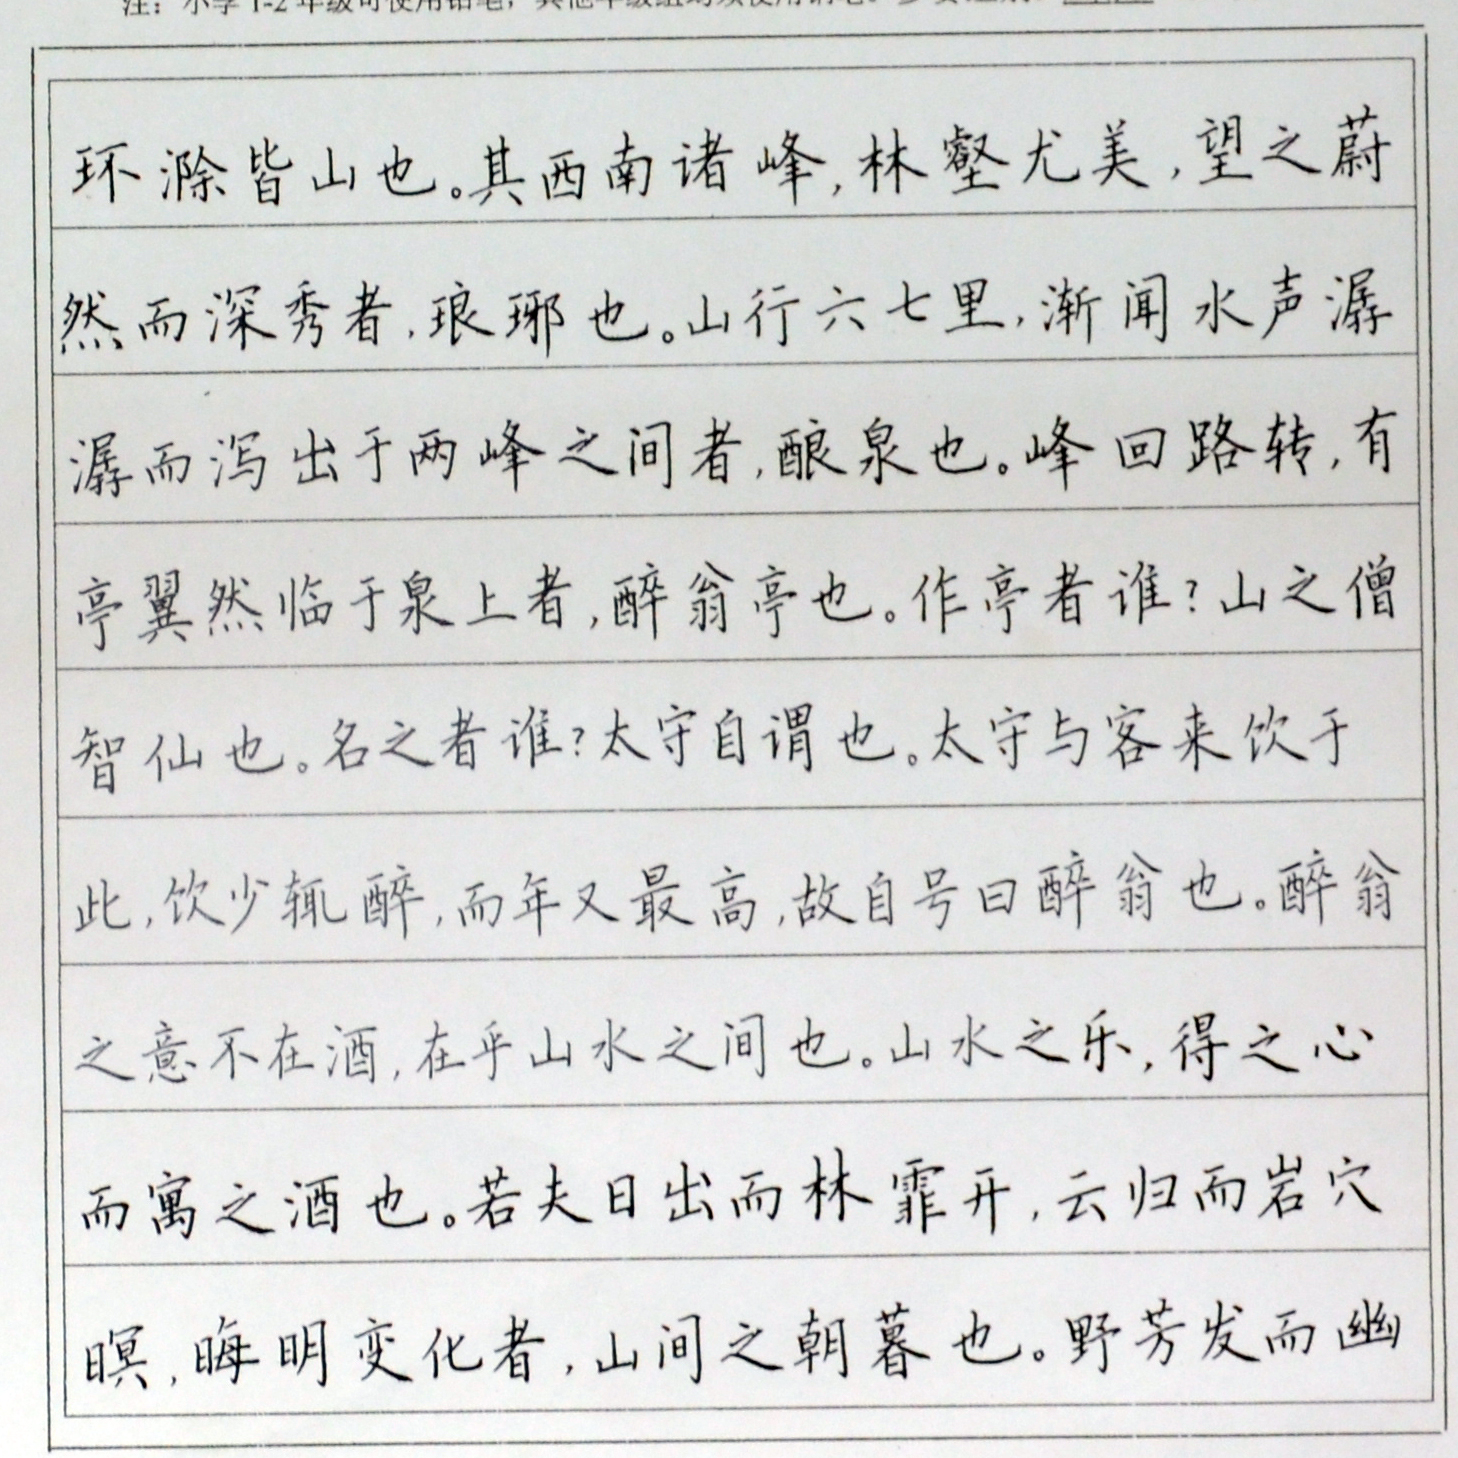 注：小学1-2年级可使用铅笔，其他年级组均须使用钢笔。
环滁皆山也。其西南诸峰,林壑尤美,望之蔚
然而深秀者,琅琊也。山行六七里,渐闻水声潺
潺而泻出于两峰之间者,酿泉也。峰回路转,有
亭翼然临于泉上者,醉翁亭也。作亭者谁?山之僧
智仙也。名之者谁?太守自谓也。太守与客来饮于
此,饮少辄醉,而年又最高,故自号曰醉翁也。醉翁
之意不在酒,在乎山水之间也。山水之乐,得之心
而寓之酒也。若夫日出而林霏开,云归而岩穴
暝,晦明变化者,山间之朝暮也。野芳发而幽